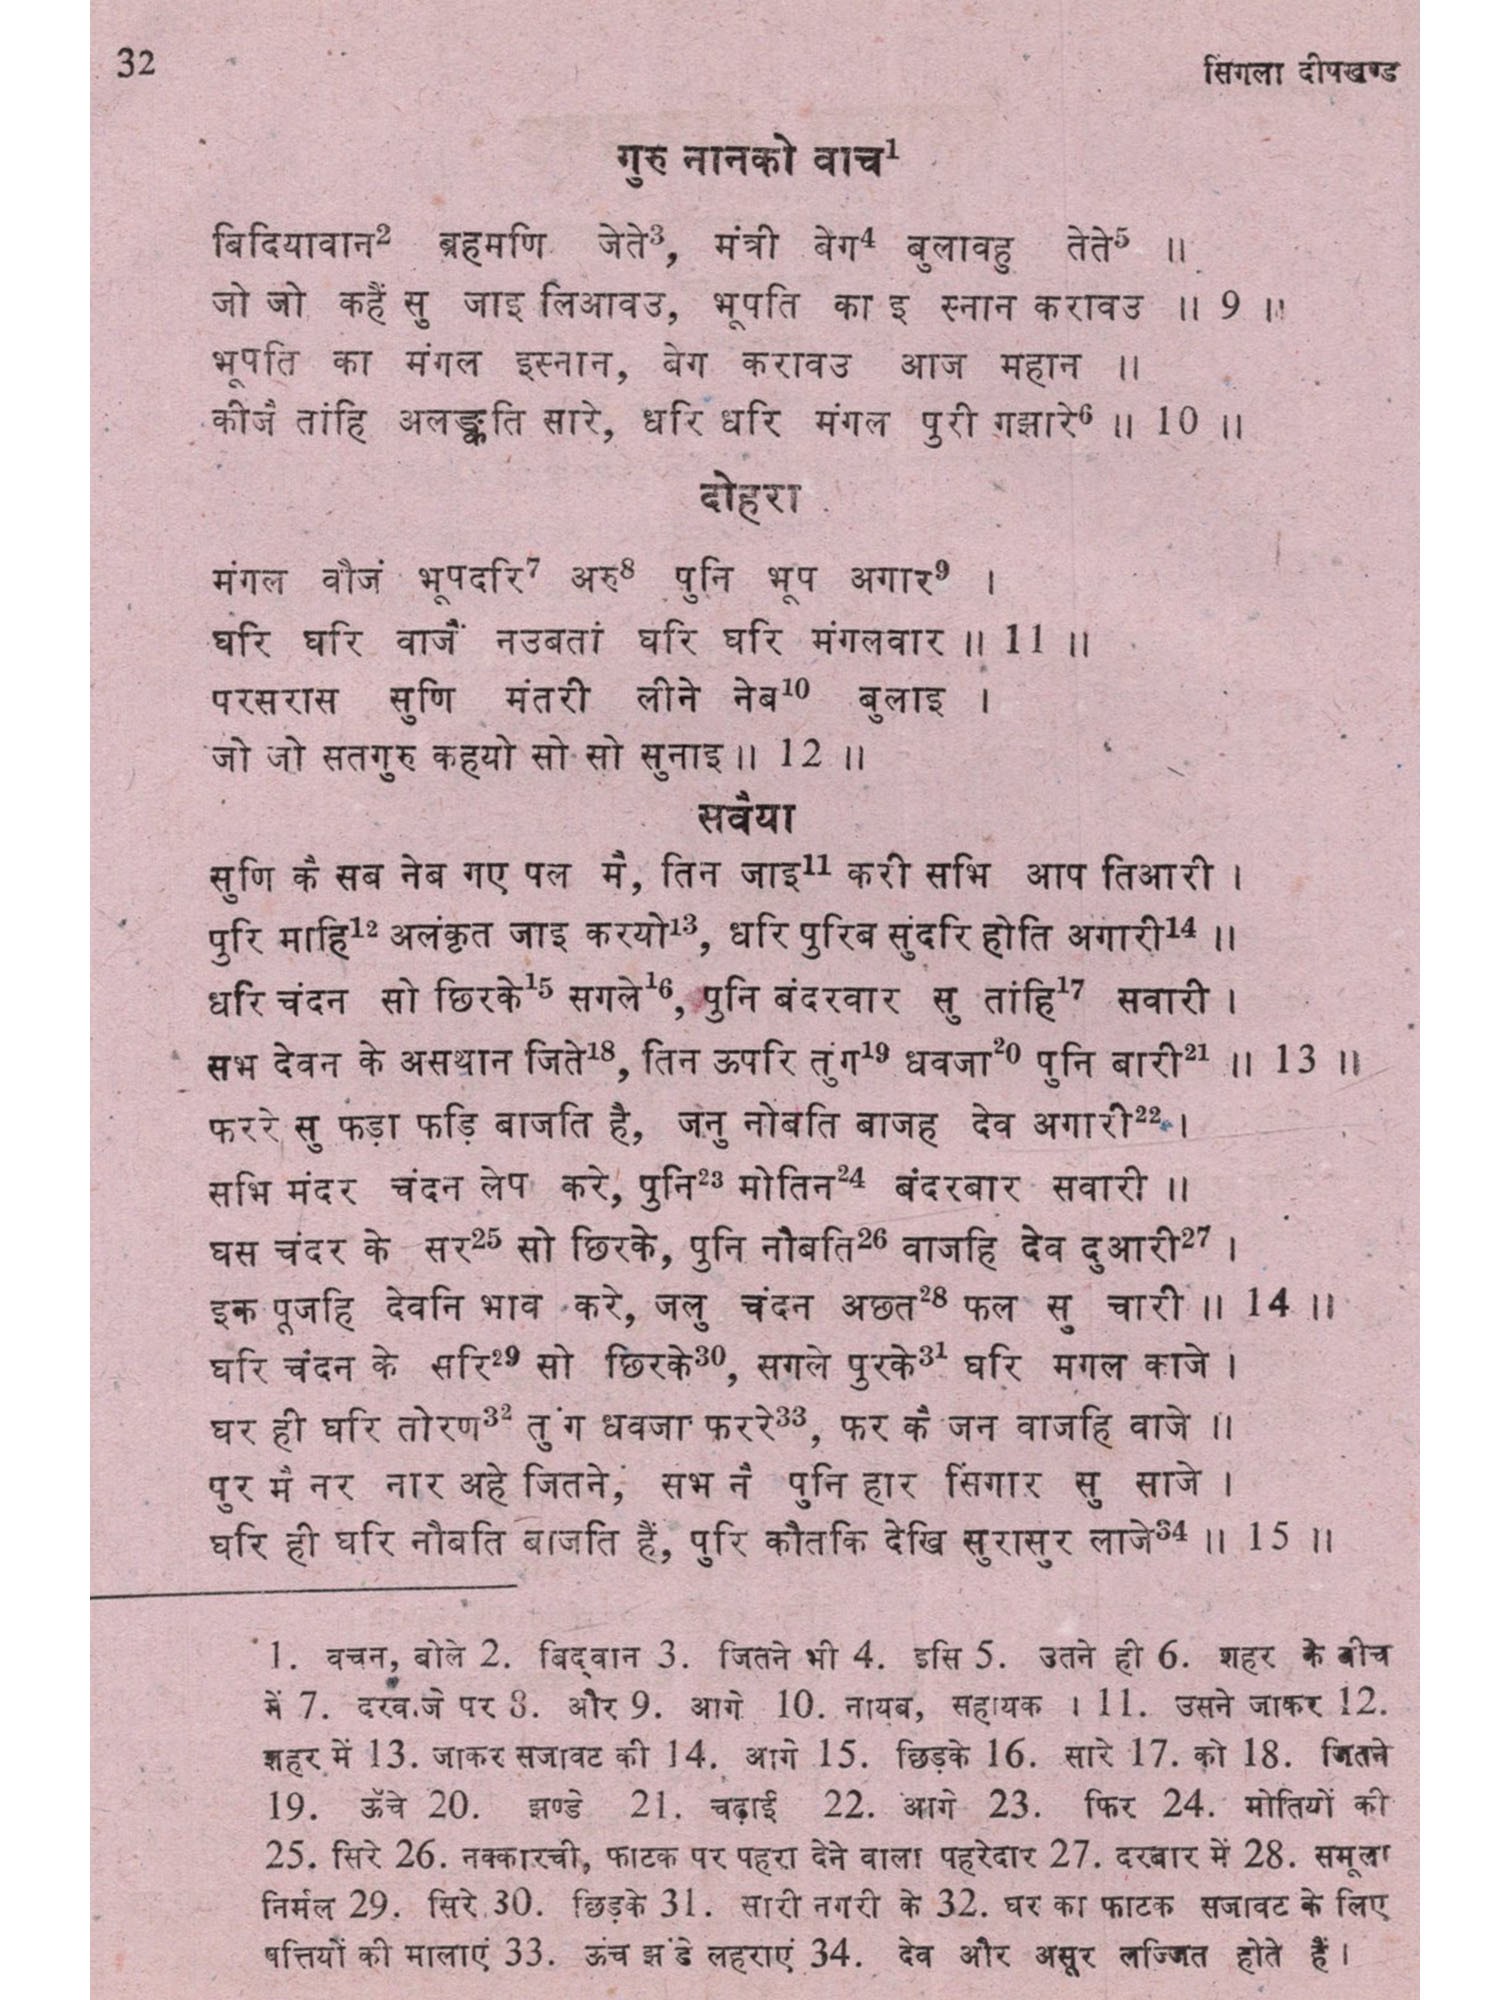 32
सिंगला दीपखण्ड
गुरु नानको वाच¹
बिदियावान² ब्रहमणि जेते³, मंत्री बेग⁴ बुलावहु तेते⁵ ॥
जो जो कहैं सु जाइ लिआवउ, भूपति का इ स्नान करावउ ॥ 9 ॥
भूपति का मंगल इस्नान, बेग करावउ आज महान ॥
कीजै तांहि अलङ्कृति सारे, धरि धरि मंगल पुरी गझारे⁶ ॥ 10 ॥
दोहरा
मंगल वौजं भूपदरि⁷ अरु⁸ पुनि भूप अगार⁹ ।
घरि घरि वाजैं नउबतां घरि घरि मंगलवार ॥ 11 ॥
परसरास सुणि मंतरी लीने नेब¹⁰ बुलाइ ।
जो जो सतगुरु कहयो सो सो सुनाइ ॥ 12 ॥
सवैया
सुणि कै सब नेब गए पल मै, तिन जाइ¹¹ करी सभि आप तिआरी ।
पुरि माहि¹² अलंकृत जाइ करयो¹³, धरि पुरिब सुंदरि होति अगारी¹⁴ ॥
धरि चंदन सो छिरके¹⁵ सगले¹⁶, पुनि बंदरवार सु तांहि¹⁷ सवारी ।
सभ देवन के असथान जिते¹⁸, तिन ऊपरि तुंग¹⁹ धवजा²⁰ पुनि बारी²¹ ॥ 13 ॥
फररे सु फड़ा फड़ि बाजति है, जनु नोबति बाजह देव अगारी²² ।
सभि मंदर चंदन लेप करे, पुनि²³ मोतिन²⁴ बंदरबार सवारी ॥
घस चंदर के सर²⁵ सो छिरके, पुनि नौबति²⁶ वाजहि देव दुआरी²⁷ ।
इक पूजहि देवनि भाव करे, जलु चंदन अछत²⁸ फल सु चारी ॥ 14 ॥
घरि चंदन के सरि²⁹ सो छिरके³⁰, सगले पुरके³¹ घरि मगल काजे ।
घर ही घरि तोरण³² तुंग धवजा फररे³³, फर कै जन वाजहि वाजे ॥
पुर मै नर नार अहे जितने, सभ नै पुनि हार सिंगार सु साजे ।
घरि ही घरि नौबति बाजति हैं, पुरि कौतकि देखि सुरासुर लाजे³⁴ ॥ 15 ॥
1. वचन, बोले 2. बिद्वान 3. जितने भी 4. इसि 5. उतने ही 6. शहर के बीच
में 7. दरवाजे पर 8. और 9. आगे 10. नायब, सहायक । 11. उसने जाकर 12.
शहर में 13. जाकर सजावट की 14. आगे 15. छिड़के 16. सारे 17. को 18. जितने
19. ऊँचे 20. झण्डे 21. चढ़ाई 22. आगे 23. फिर 24. मोतियों की
25. सिरे 26. नक्कारची, फाटक पर पहरा देने वाला पहरेदार 27. दरबार में 28. समूला
निर्मल 29. सिरे 30. छिड़के 31. सारी नगरी के 32. घर का फाटक सजावट के लिए
षत्तियों की मालाएं 33. ऊंच झंडे लहराएं 34. देव और असूर लज्जित होते हैं ।